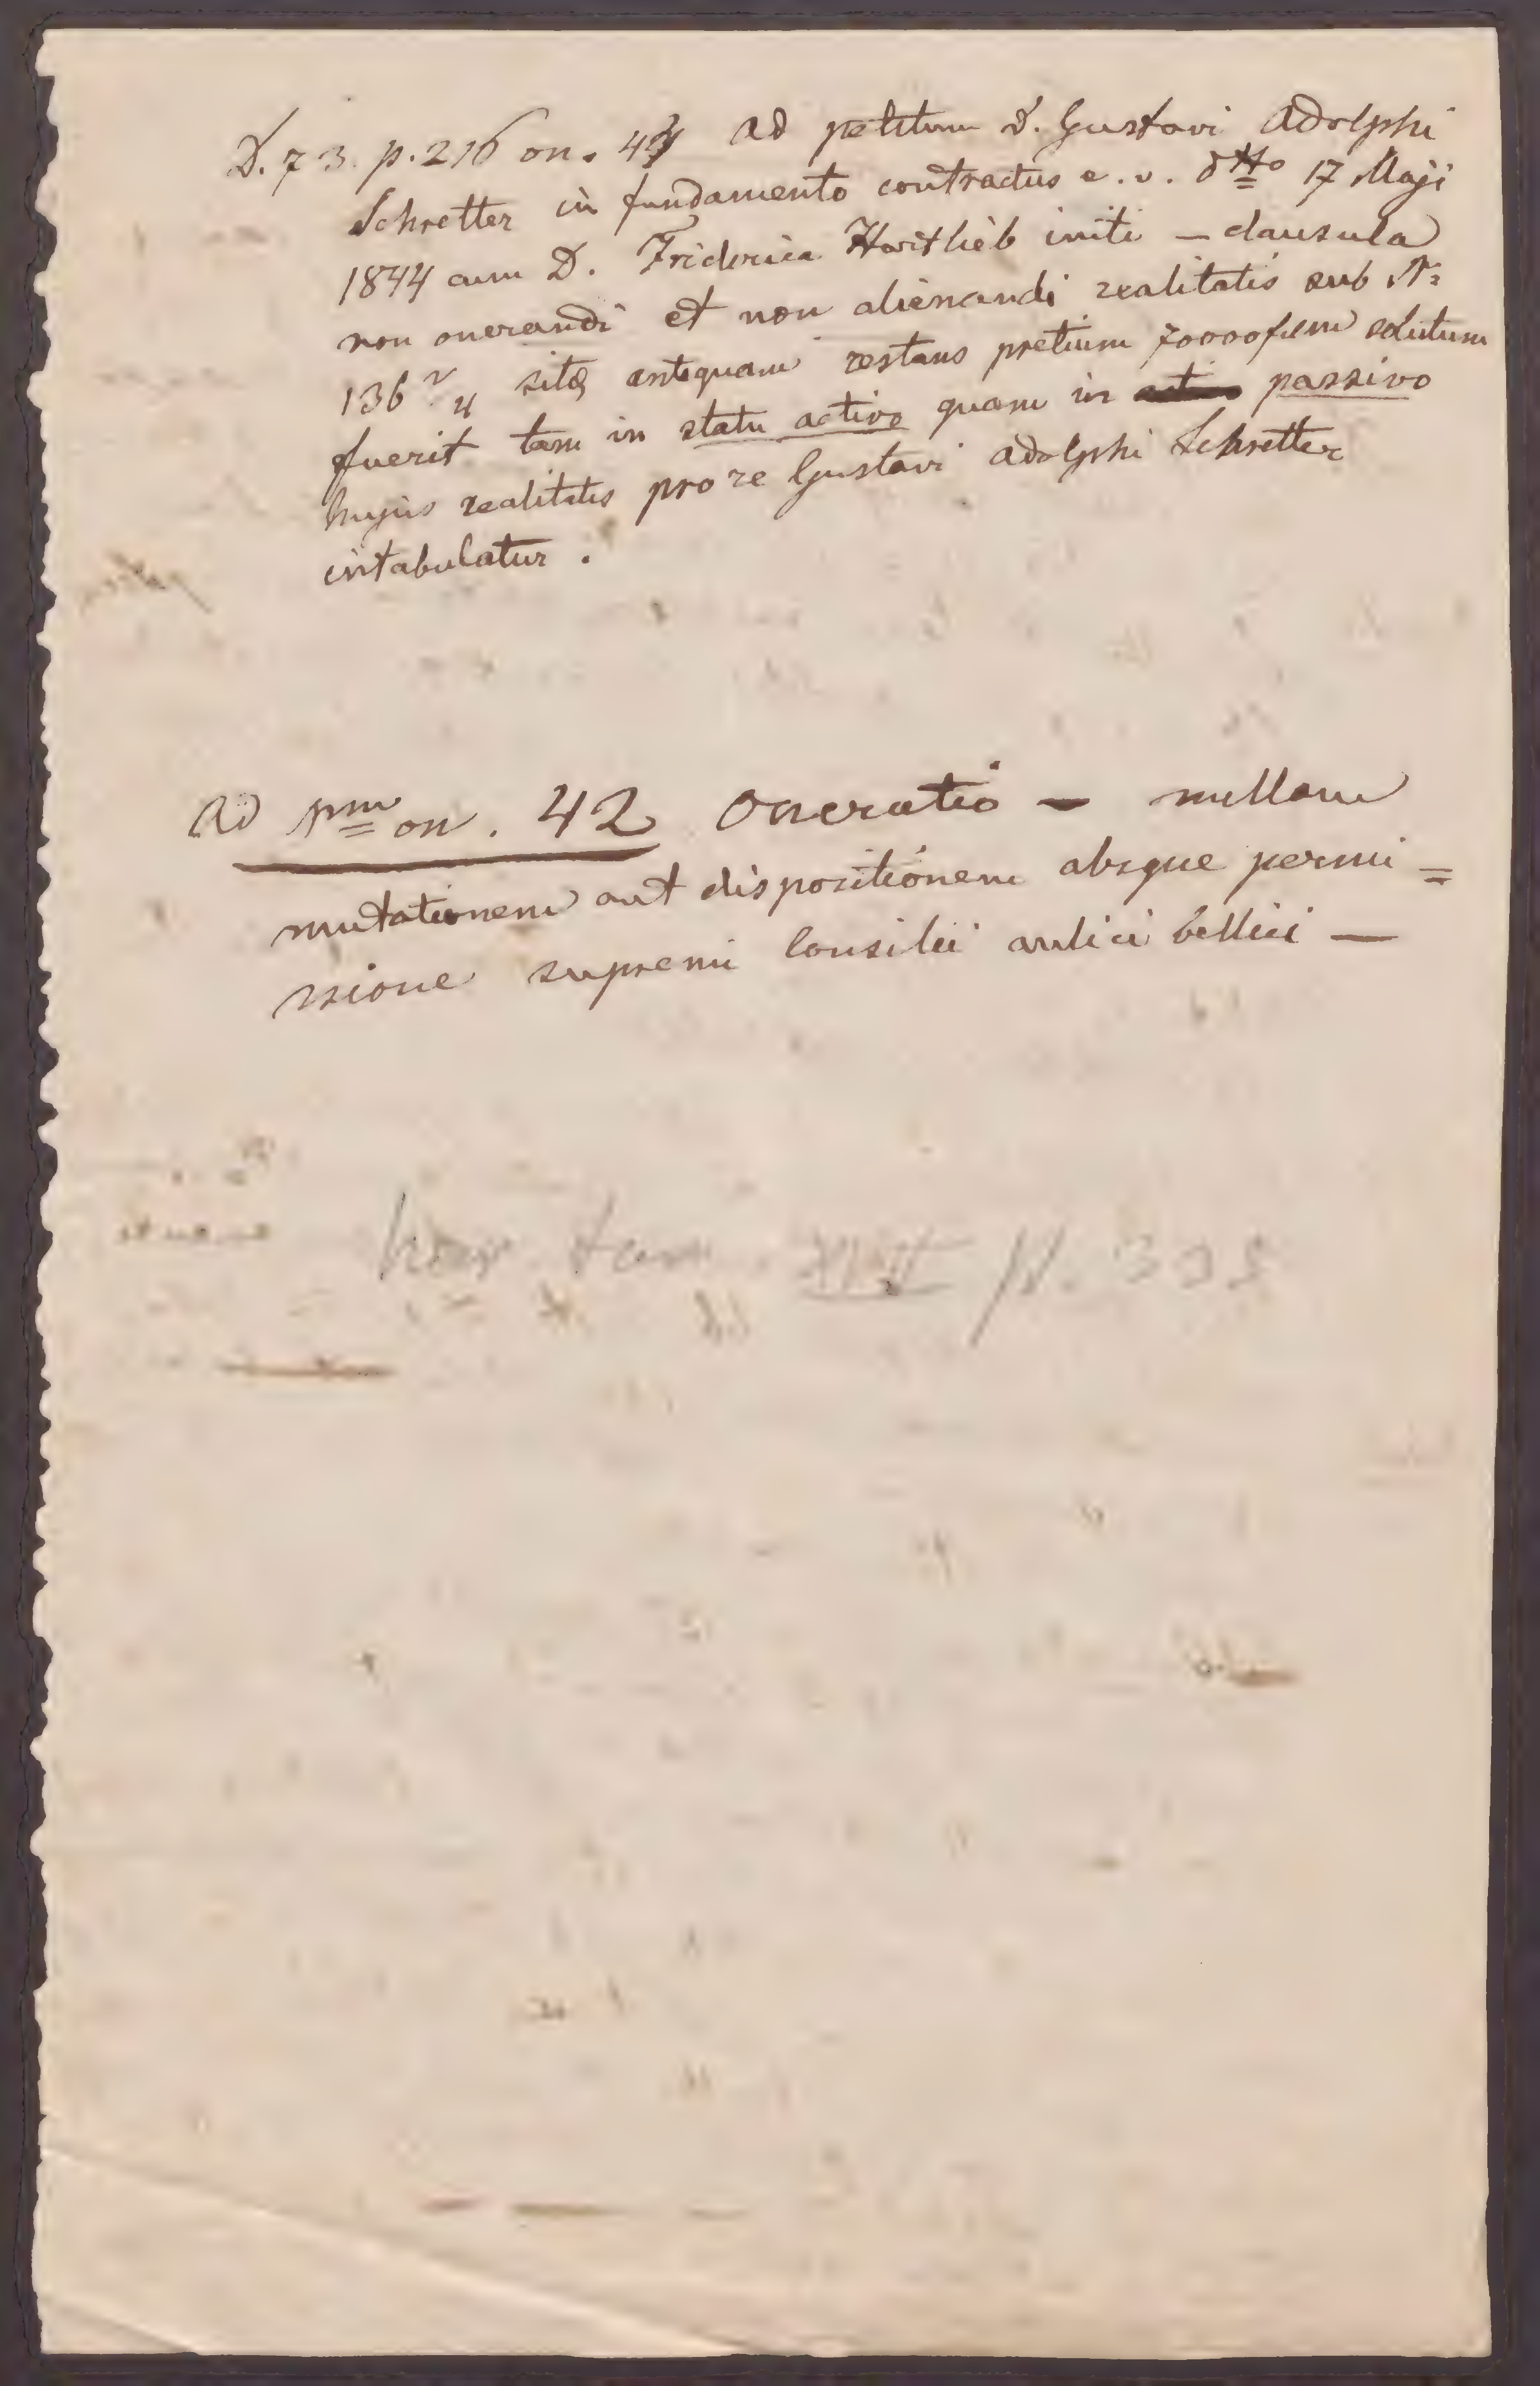 D. 73. p. 216 on. 43 ad petitum D. Gustavi Adolphi
Schretter in fundamento contractus e. v. dtto 17 Maji
1844 cum D. Friderica Hartlieb initi — clausula
non onerandi et non alienandi realitatis sub N:
136 2/4 sitæ antequam restans pretium 70000 solutum
fuerit tam in statu activo quam in passivo
hujus realitatis pro re Gustavi Adolphi Schretter
intabulatur.
ad on. 42 Oneratio — nullam
mutationem aut dispositionem absque permi=
ssione supremi Consilii aulici bellici —